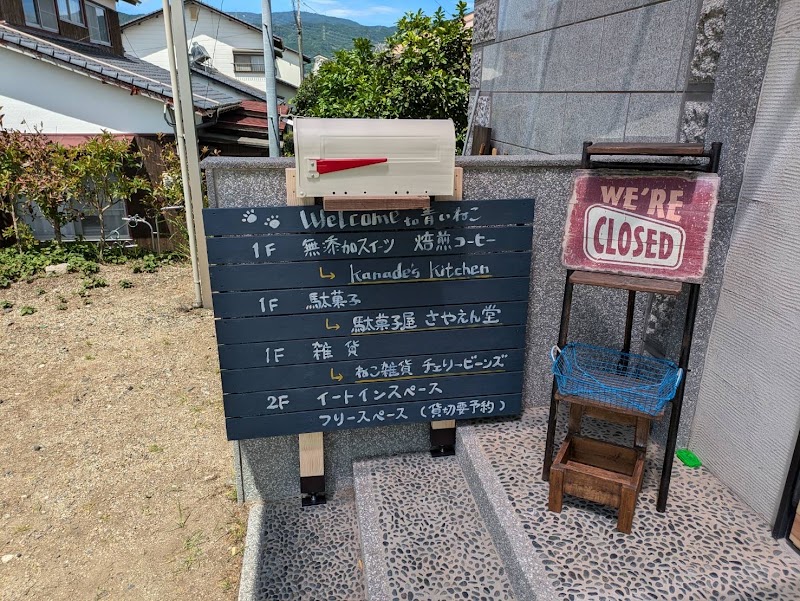 Welcome to 青いねこ
1F 無添加スイーツ 焙煎コーヒー
Kanade's Kitchen
1F 駄菓子
駄菓子屋 さやえん堂
1F 雑貨
ねこ雑貨 チェリービーンズ
2F イートインスペース
フリースペース (貸切要予約)
WE'RE
CLOSED